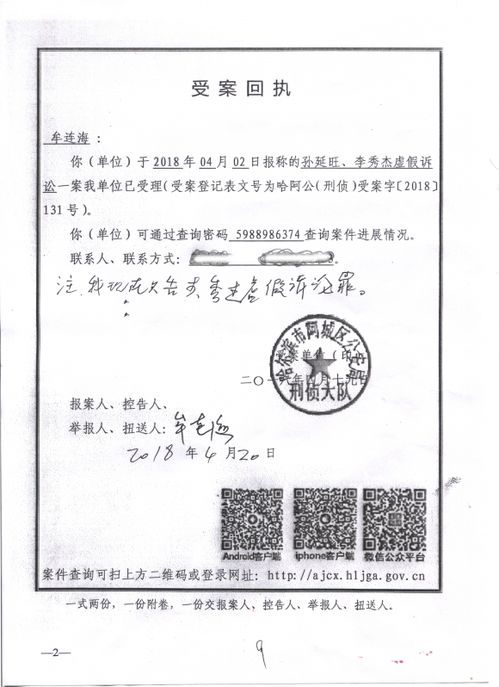 受案回执
牟连海：
你（单位）于2018年04月02日报称的孙延旺、李秀杰虚假诉
讼一案我单位已受理（受案登记表文号为哈阿公(刑侦)受案字[2018]
131号）。
你（单位）可通过查询密码 5988986374 查询案件进展情况。
联系人、联系方式：
注，我现在只告李秀杰虚假诉讼罪。
哈尔滨市阿城区公安局
刑侦大队
案单位（印
二〇一八年四月十九日
报案人、控告人、
举报人、扭送人：牟连海
2018年4月20日
Android客户端 iphone客户端 微信公众平台
案件查询可扫上方二维码或登录网址：http://ajcx.hljga.gov.cn
一式两份，一份附卷，一份交报案人、控告人、举报人、扭送人。
—2—
9